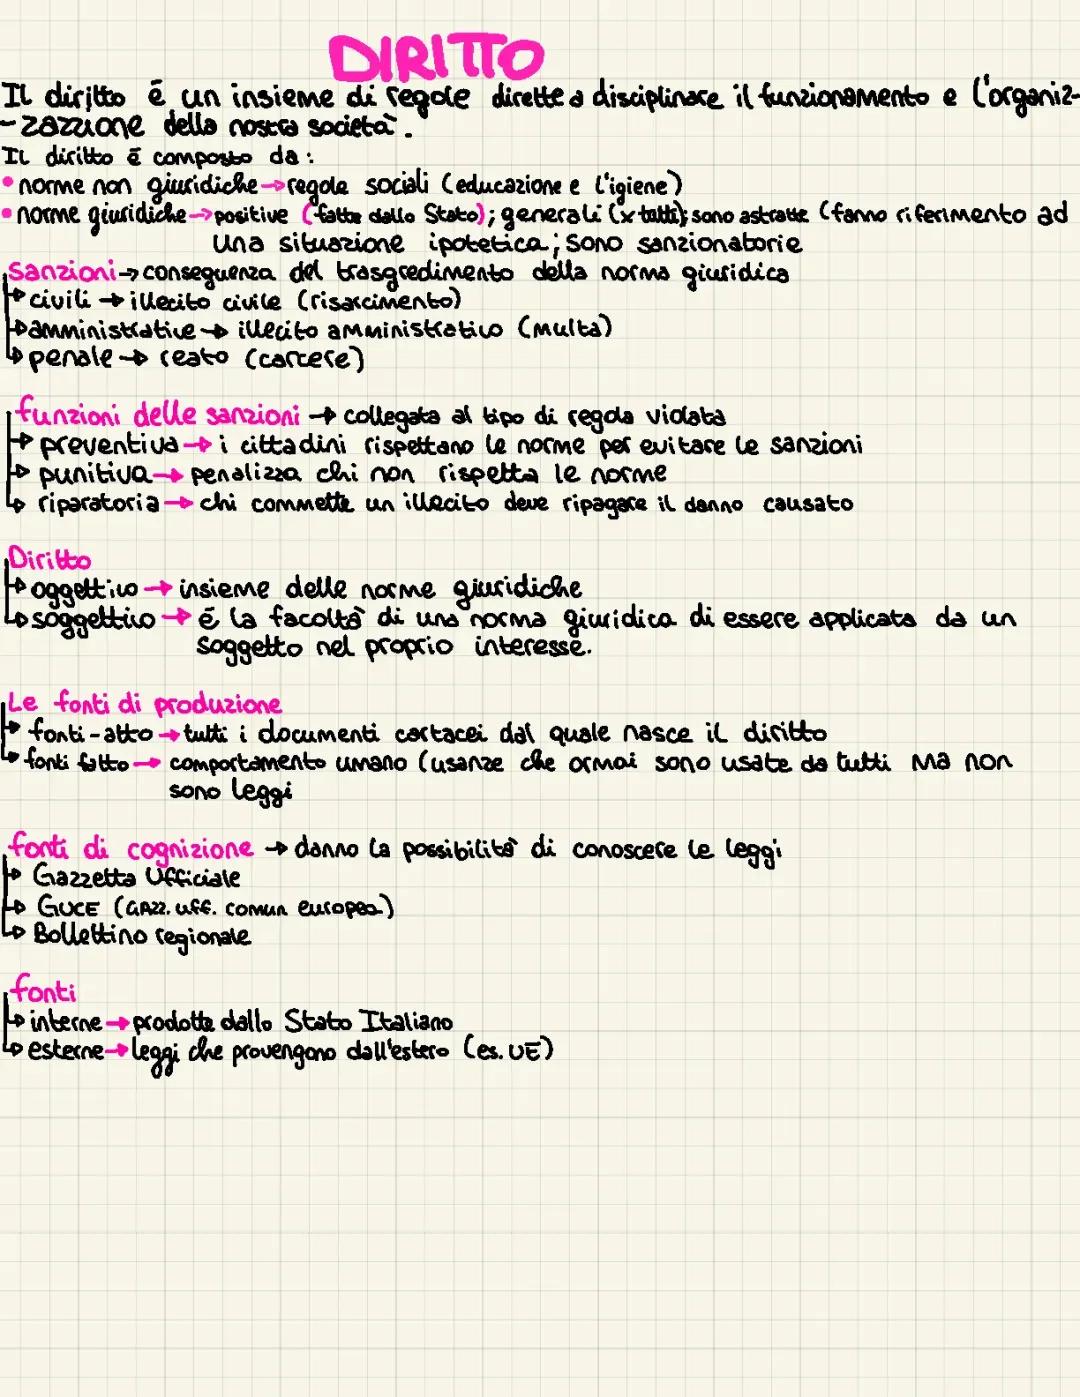 DIRITTO
Il diritto é un insieme di regole dirette a disciplinare il funzionamento e l'organiz-
-zazzione della nostra società.
Il diritto é composto da:
• norme non giuridiche → regole sociali (educazione e l'igiene)
• norme giuridiche → positive (fatte dallo Stato); generali (x tutti); sono astratte (fanno riferimento ad
una situazione ipotetica; sono sanzionatorie
Sanzioni → conseguenza del trasgredimento della norma giuridica
↳ civili → illecito civile (risarcimento)
↳ amministrative → illecito amministrativo (multa)
↳ penale → reato (carcere)
funzioni delle sanzioni → collegata al tipo di regola violata
↳ preventiva → i cittadini rispettano le norme per evitare le sanzioni
↳ punitiva → penalizza chi non rispetta le norme
↳ riparatoria → chi commette un illecito deve ripagare il danno causato
Diritto
↳ oggettivo → insieme delle norme giuridiche
↳ soggettivo → é la facoltà di una norma giuridica di essere applicata da un
soggetto nel proprio interesse.
Le fonti di produzione
↳ fonti-atto → tutti i documenti cartacei dal quale nasce il diritto
↳ fonti fatto → comportamento umano (usanze che ormai sono usate da tutti ma non
sono leggi
fonti di cognizione → danno la possibilità di conoscere le leggi
↳ Gazzetta Ufficiale
↳ GUCE (GAZZ. uff. comun europea)
↳ Bollettino regionale
fonti
↳ interne → prodotte dallo Stato Italiano
↳ esterne → leggi che provengono dall'estero (es. UE)